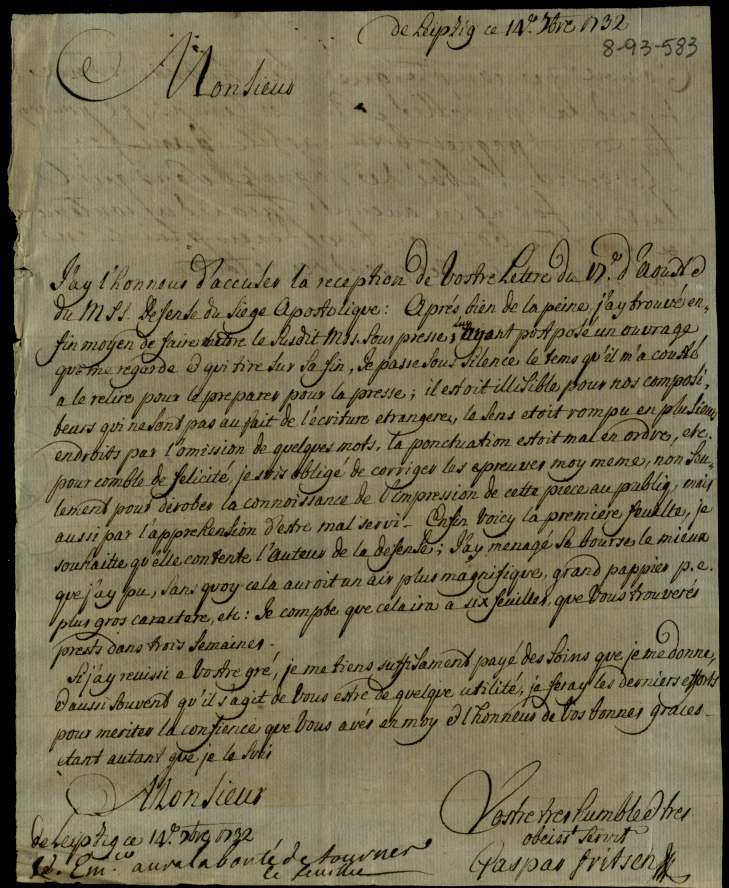 de Leipzig ce 14.e 7bre 1732
8-93-583
Monsieur
J'ay l'honneur d'accuser la reception de Vostre Lettre du 17.e d'Aoust &
du MSS. Defense du Siege Apostolique: Aprés bien de la peine j'ay trouvé en-
fin moyen de faire mettre le susdit Mss. sous presse, luy ayant postposé un ouvrage
qui me regarde & qui tire sur sa fin, Je passe sous silence le tems qu'il m'a cousté
a le relire pour le preparer pour la presse; il estoit illisible pour nos composi-
teurs qui ne sont pas au fait de l'écriture etrangere, le sens etoit rompu en plusieurs
endroits par l'omission de quelques mots, la ponctuation estoit mal en ordre, etc.
pour comble de felicité, je suis obligé de corriger les epreuves moy meme, non seu-
lement pour dérober la connoissance de l'impression de cette piece au public, mais
aussi par l'apprehension d'estre mal servi. Enfin voicy la première feuille, je
souhaitte qu'elle contente l'auteur de la defense; J'ay menagé sa bourse le mieux
que j'ay pu, sans quoy cela auroit un air plus magnifique, grand pappier p.e.
plus gros caractere, etc: Je compte que cela ira a six feuilles, que Vous trouverés
prests dans trois semaines.
Si j'ay reussi a Vostre gré, je me tiens suffisament payé des soins que je me donne,
& aussi souvent qu'il s'agit de Vous estre de quelque utilité, je feray les derniers efforts
pour meriter la confience que Vous avés en moy & l'honneur de Vos bonnes graces
etant autant que je le suis
Monsieur
Vostre tres humble & tres
de Leipzig ce 14.e 7bre 1732
obeisst servit
Em.ce aura la bonté de tourner
Gaspar Fritsch
le feuillet